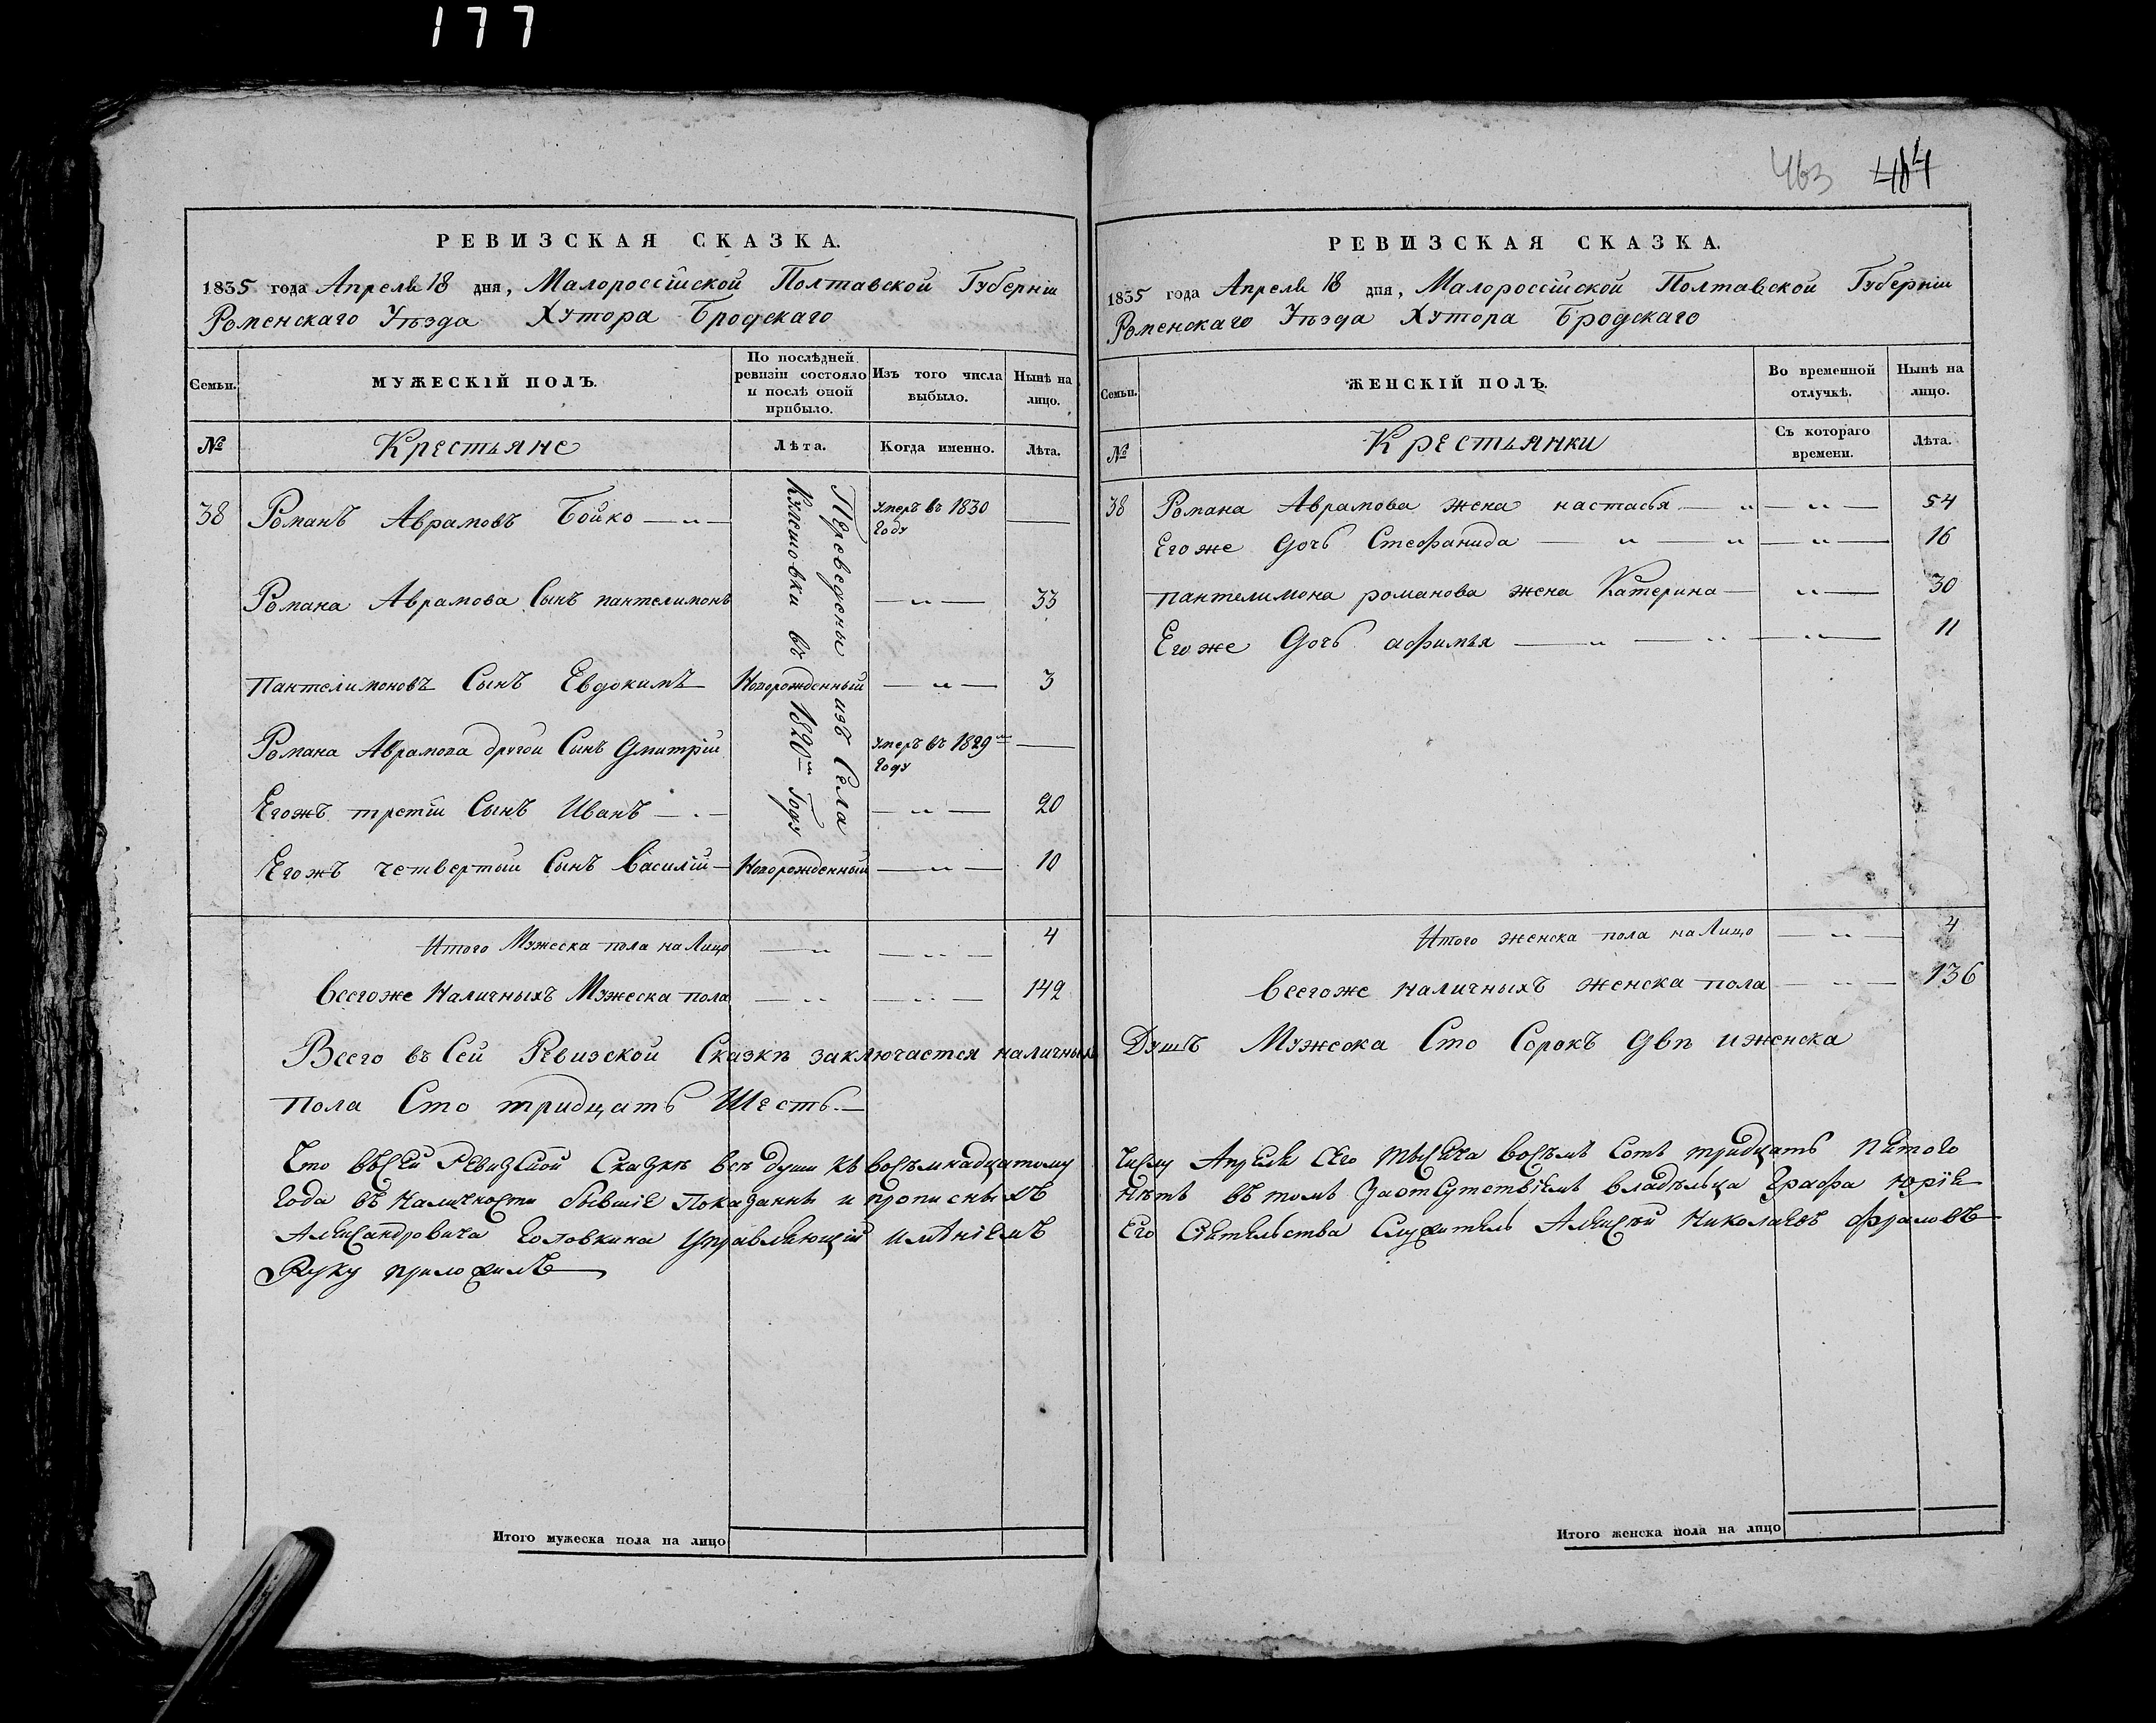 177
463 464
РЕВИЗСКАЯ СКАЗКА.
1835 года Апреля 18 дня, Малороссійской Полтавской Губерніи
Роменскаго Уѣзда Хутора Бродскаго
Семьи.
МУЖЕСКІЙ ПОЛЪ.
По послѣдней ревизіи состояло и послѣ оной прибыло.
Изъ того числа выбыло.
Нынѣ на лицо.
№
Крестьяне
Лѣта.
Когда именно.
Лѣта.
38 Романъ Аврамовъ Бойко — умеръ въ 1830 Году —
Переведены изъ Села
Кулешовки въ 1820м Году
Романа Аврамова Сынъ пантелимонъ — 33
Пантелимоновъ Сынъ Евдокимъ Новорожденный — 3
Романа Аврамова другой Сынъ Дмитрій умеръ въ 1829м Году —
Егожъ третій Сынъ Иванъ — 20
Егожъ четвертый Сынъ Василій Новорожденный — 10
Итого Мужеска пола на Лицо — 4
Всегоже Наличныхъ Мужеска пола — 142
Всего въ Сей Ревизской Сказкѣ заключается наличныхъ
пола Сто тридцать Шесть.
Что въ сей Ревизской Сказкѣ всѣ души къ восъмнадцатому
Года въ Наличности бывшіе Показаны и прописныхъ
Александровича Головкина Управляющій имѣніемъ
Руку приложилъ
Итого мужеска пола на лицо
РЕВИЗСКАЯ СКАЗКА.
1835 года Апреля 18 дня, Малороссійской Полтавской Губерніи
Роменскаго Уѣзда Хутора Бродскаго
Семьи.
ЖЕНСКІЙ ПОЛЪ.
Во временной отлучкѣ.
Нынѣ на лицо.
№
Крестьянки
Съ котораго времени.
Лѣта.
38 Романа Аврамова жена настасья — 54
Его же дочь Стефанида — 16
пантелимона романова жена Катерина — 30
Его же дочь афимья — 11
Итого женска пола на Лицо — 4
Всегоже наличныхъ женска пола — 136
Душъ Мужеска Сто Сорокъ двѣ и женска
числу Апреля сего тысяча восъмъ сотъ тридцать пятого
нѣтъ въ томъ за отсутствіемъ владѣльца Графа Юрія
Его Сіятельства Служитель Алексѣй Николаевъ Фраловъ
Итого женска пола на лицо